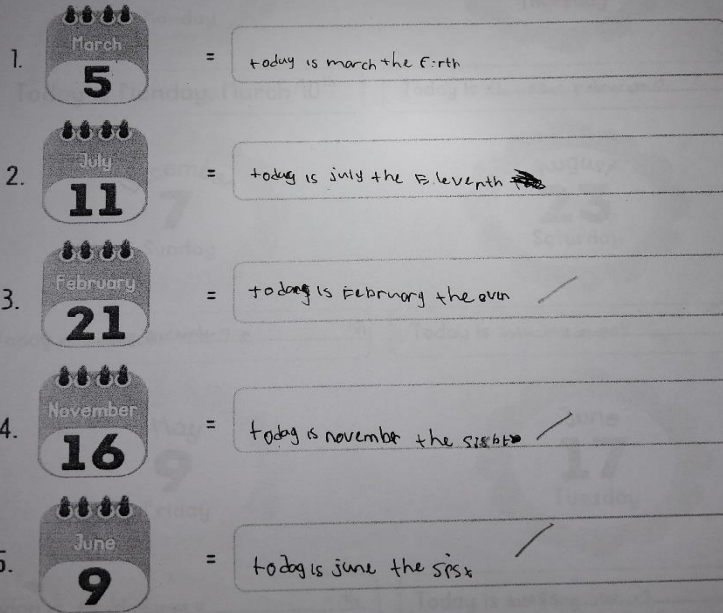 1. March 5 = today is march the Firth
2. July 11 = today is july the Eleventh
3. February 21 = today is February the
4. November 16 = today is november the
5. June 9 = today is june the